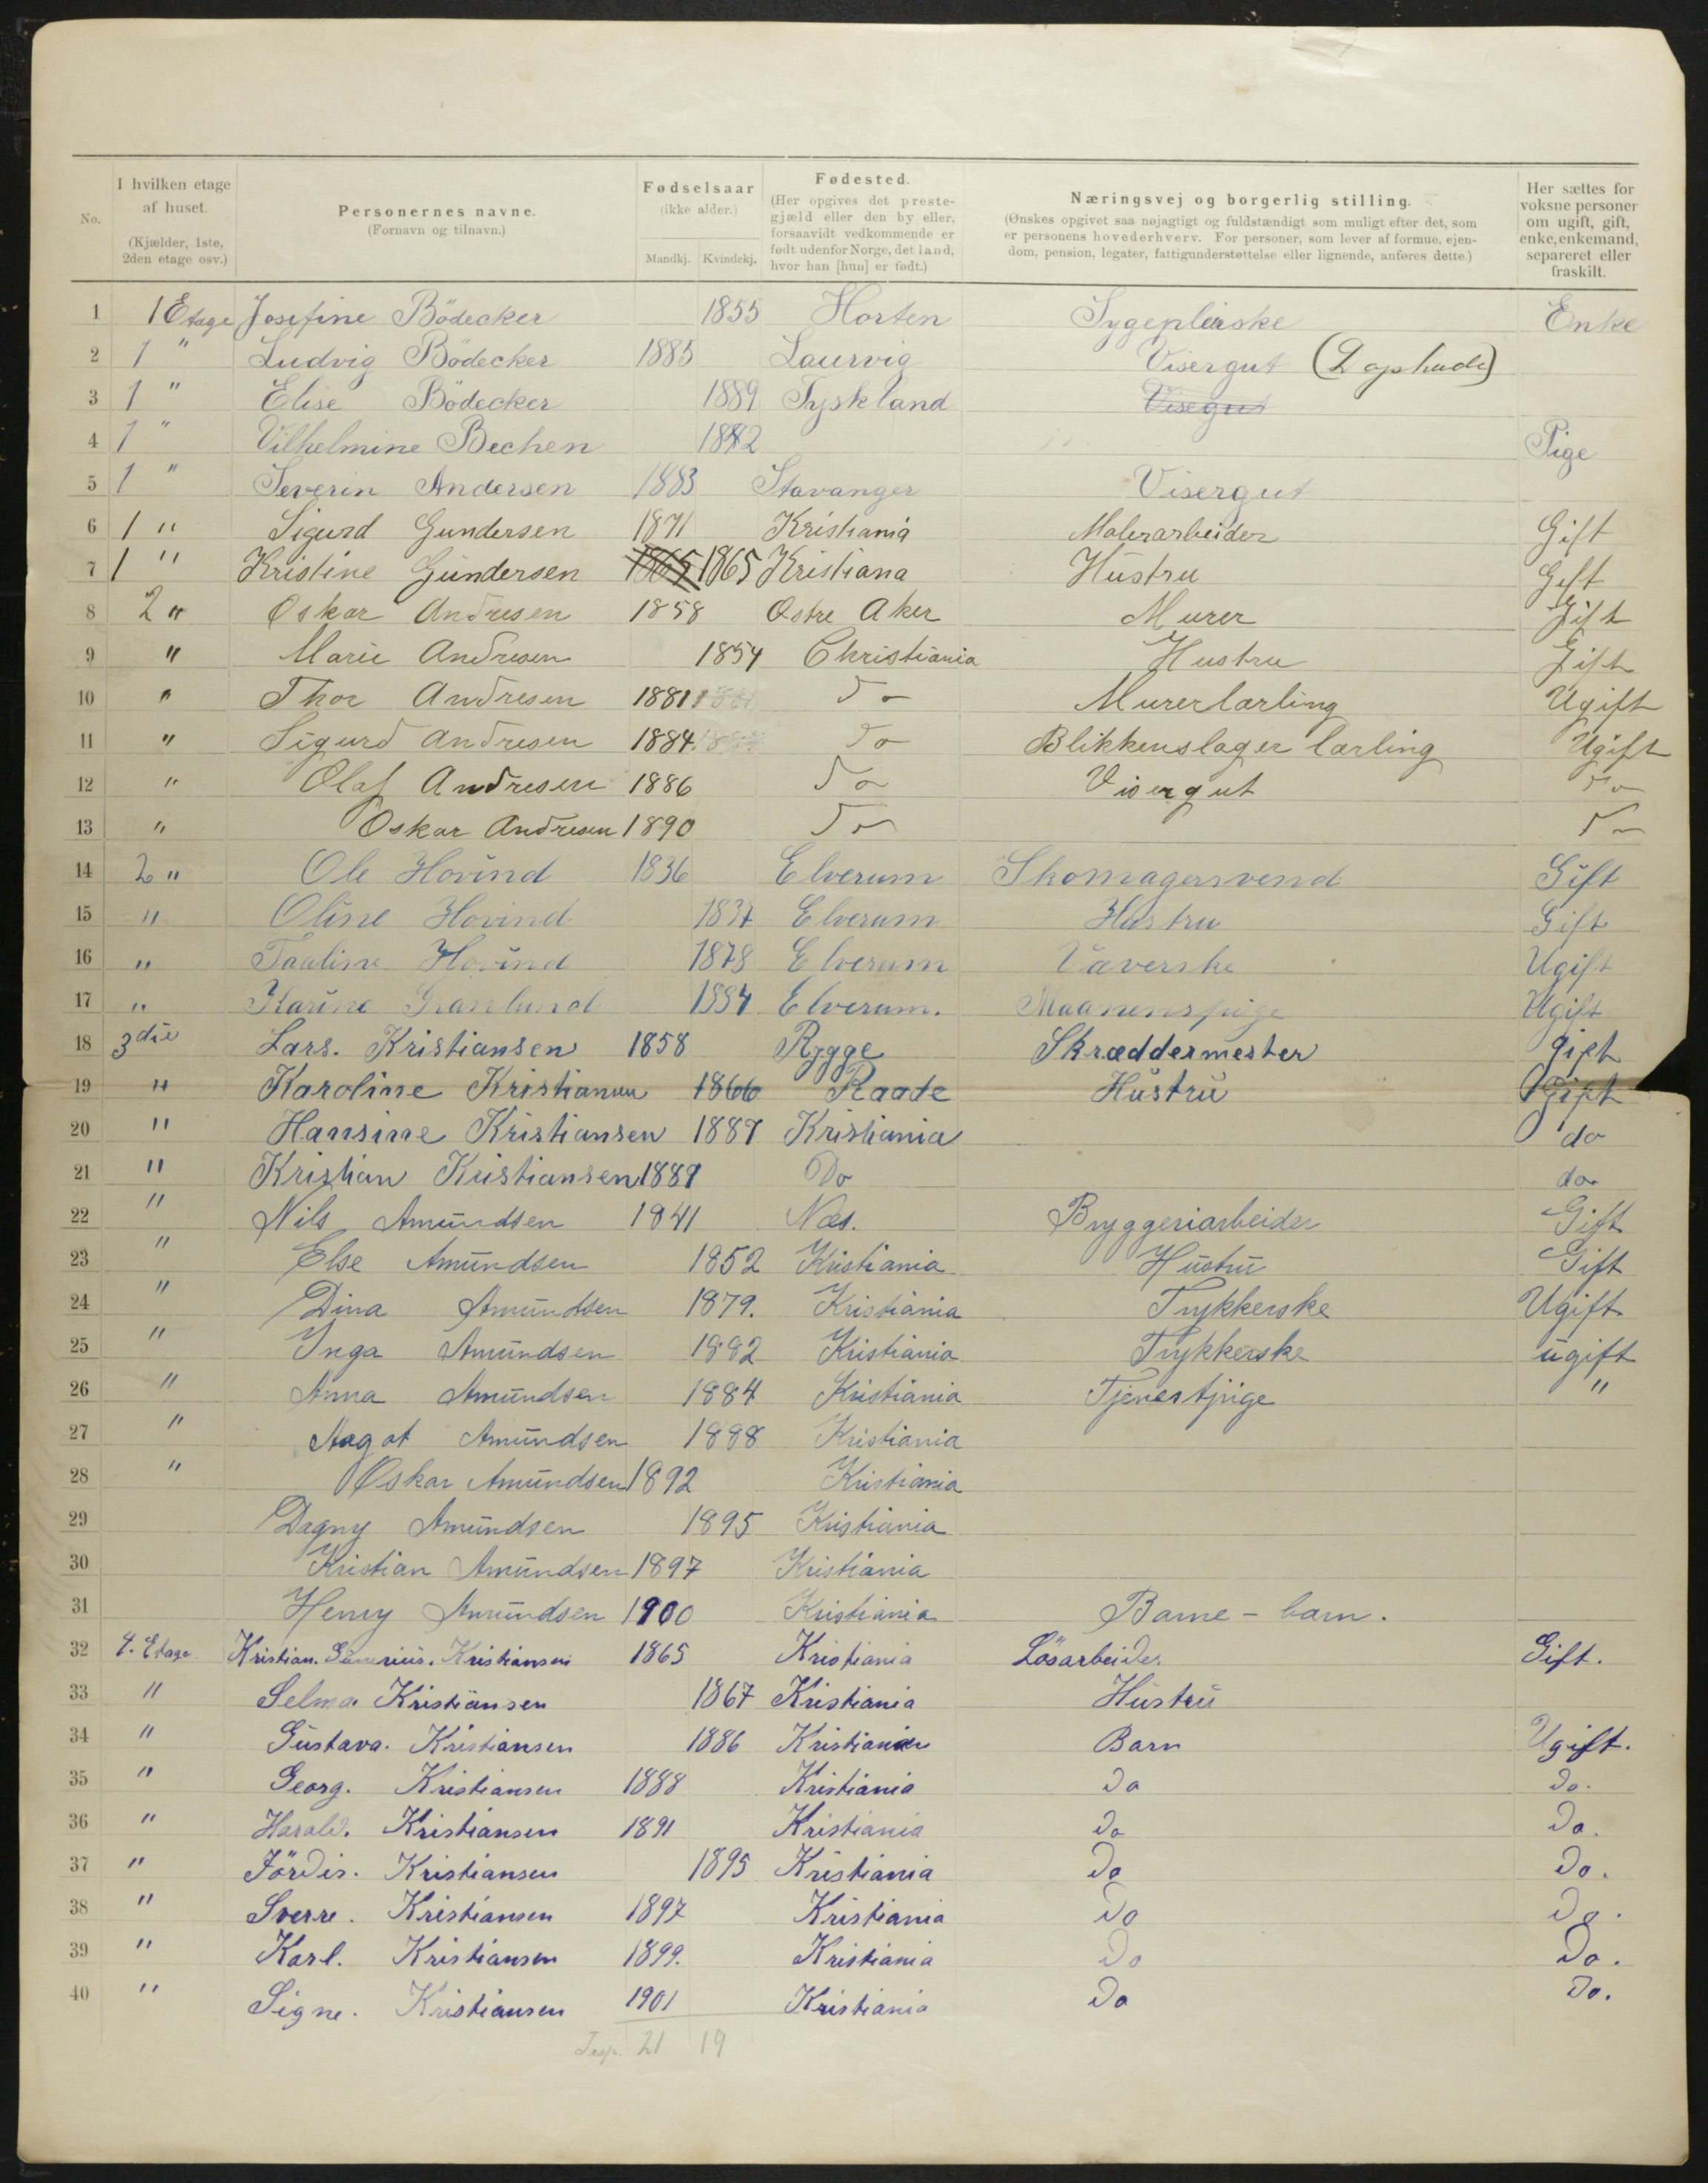 No.
I hvilken etage af huset. (Kjælder, 1ste, 2den etage osv.)
Personernes navne. (Fornavn og tilnavn.)
Fødselsaar (ikke alder.) Mandkj. Kvindekj.
Fødested. (Her opgives det prestegjæld eller den by eller, forsaavidt vedkommende er født udenfor Norge, det land, hvor han [hun] er født.)
Næringsvej og borgerlig stilling. (Ønskes opgivet saa nøjagtigt og fuldstændigt som muligt efter det, som er personens hovederhverv. For personer, som lever af formue, ejendom, pension, legater, fattigunderstøttelse eller lignende, anføres dette.)
Her sættes for voksne personer om ugift, gift, enke, enkemand, separeret eller fraskilt.
1 1 Etage Josefine Bödecker 1855 Horten Sygeplerske Enke
2 1 " Ludvig Bödecker 1885 Laurvig Visergut
3 1 " Elise Bödecker 1889 Tyskland Visegut
4 1 " Vilhelmine Bechen 1882 Pige
5 1 " Severin Andersen 1883 Stavanger Visergut
6 1 " Sigurd Gundersen 1871 Kristiania Malerarbeider Gift
7 1 " Kristine Gundersen 1865 1865 Kristiana Hustru Gift
8 2 " Oskar Andresen 1858 Ostre Aker Murer Gift
9 " Marie Andresen 1854 Christiania Hustru Gift
10 " Thor Andresen 1881 Do Murerlærling Ugift
11 " Sigurd Andresen 1884 Do Blikkenslager lærling Ugift
12 " Olaf Andresen 1886 Do Visergut Do
13 " Oskar Andresen 1890 Do Do
14 2 " Ole Hovind 1836 Elverum Skomagersvend Gift
15 " Oline Hovind 1837 Elverum Hustru Gift
16 " Paaline Hovind 1878 Elverum Væverske Ugift
17 " Karine Granlund 1884 Elverum. Maanenspige Ugift
18 3die Lars. Kristiansen 1858 Rygge Skræddermester gift
19 " Karoline Kristiansen 1866 Raade Hustru Gift
20 " Hansine Kristiansen 1887 Kristiania do
21 " Kristian Kristiansen 1889 Do do
22 " Nils Amundsen 1841 Næs. Bryggeriarbeider Gift
23 " Else Amundsen 1852 Kristiania Hustru Gift
24 " Dina Amundsen 1879. Kristiania Trykkerske Ugift
25 " Inga Amundsen 1882 Kristiania Trykkerske ugift
26 " Anna Amundsen 1884 Kristiania Tjenestpige "
27 " Aagot Amundsen 1888 Kristiania
28 " Oskar Amundsen 1892 Kristiania
29 Dagny Amundsen 1895 Kristiania
30 Kristian Amundsen 1897 Kristiania
31 Henry Amundsen 1900 Kristiania Barne - barn.
32 4. Etage Kristian. Kristiansen 1865 Kristiania Lösarbeider Gift.
33 " Selma Kristiansen 1867 Kristiania Hustru
34 " Gustava. Kristiansen 1886 Kristiania Barn Ugift.
35 " Georg. Kristiansen 1888 Kristiania Do Do.
36 " Harald. Kristiansen 1891 Kristiania Do Do.
37 " Jördis. Kristiansen 1895 Kristiania Do Do.
38 " Sverre. Kristiansen 1897 Kristiania Do Do.
39 " Karl. Kristiansen 1899. Kristiania Do Do.
40 " Signe. Kristiansen 1901 Kristiania Do Do.
21 19